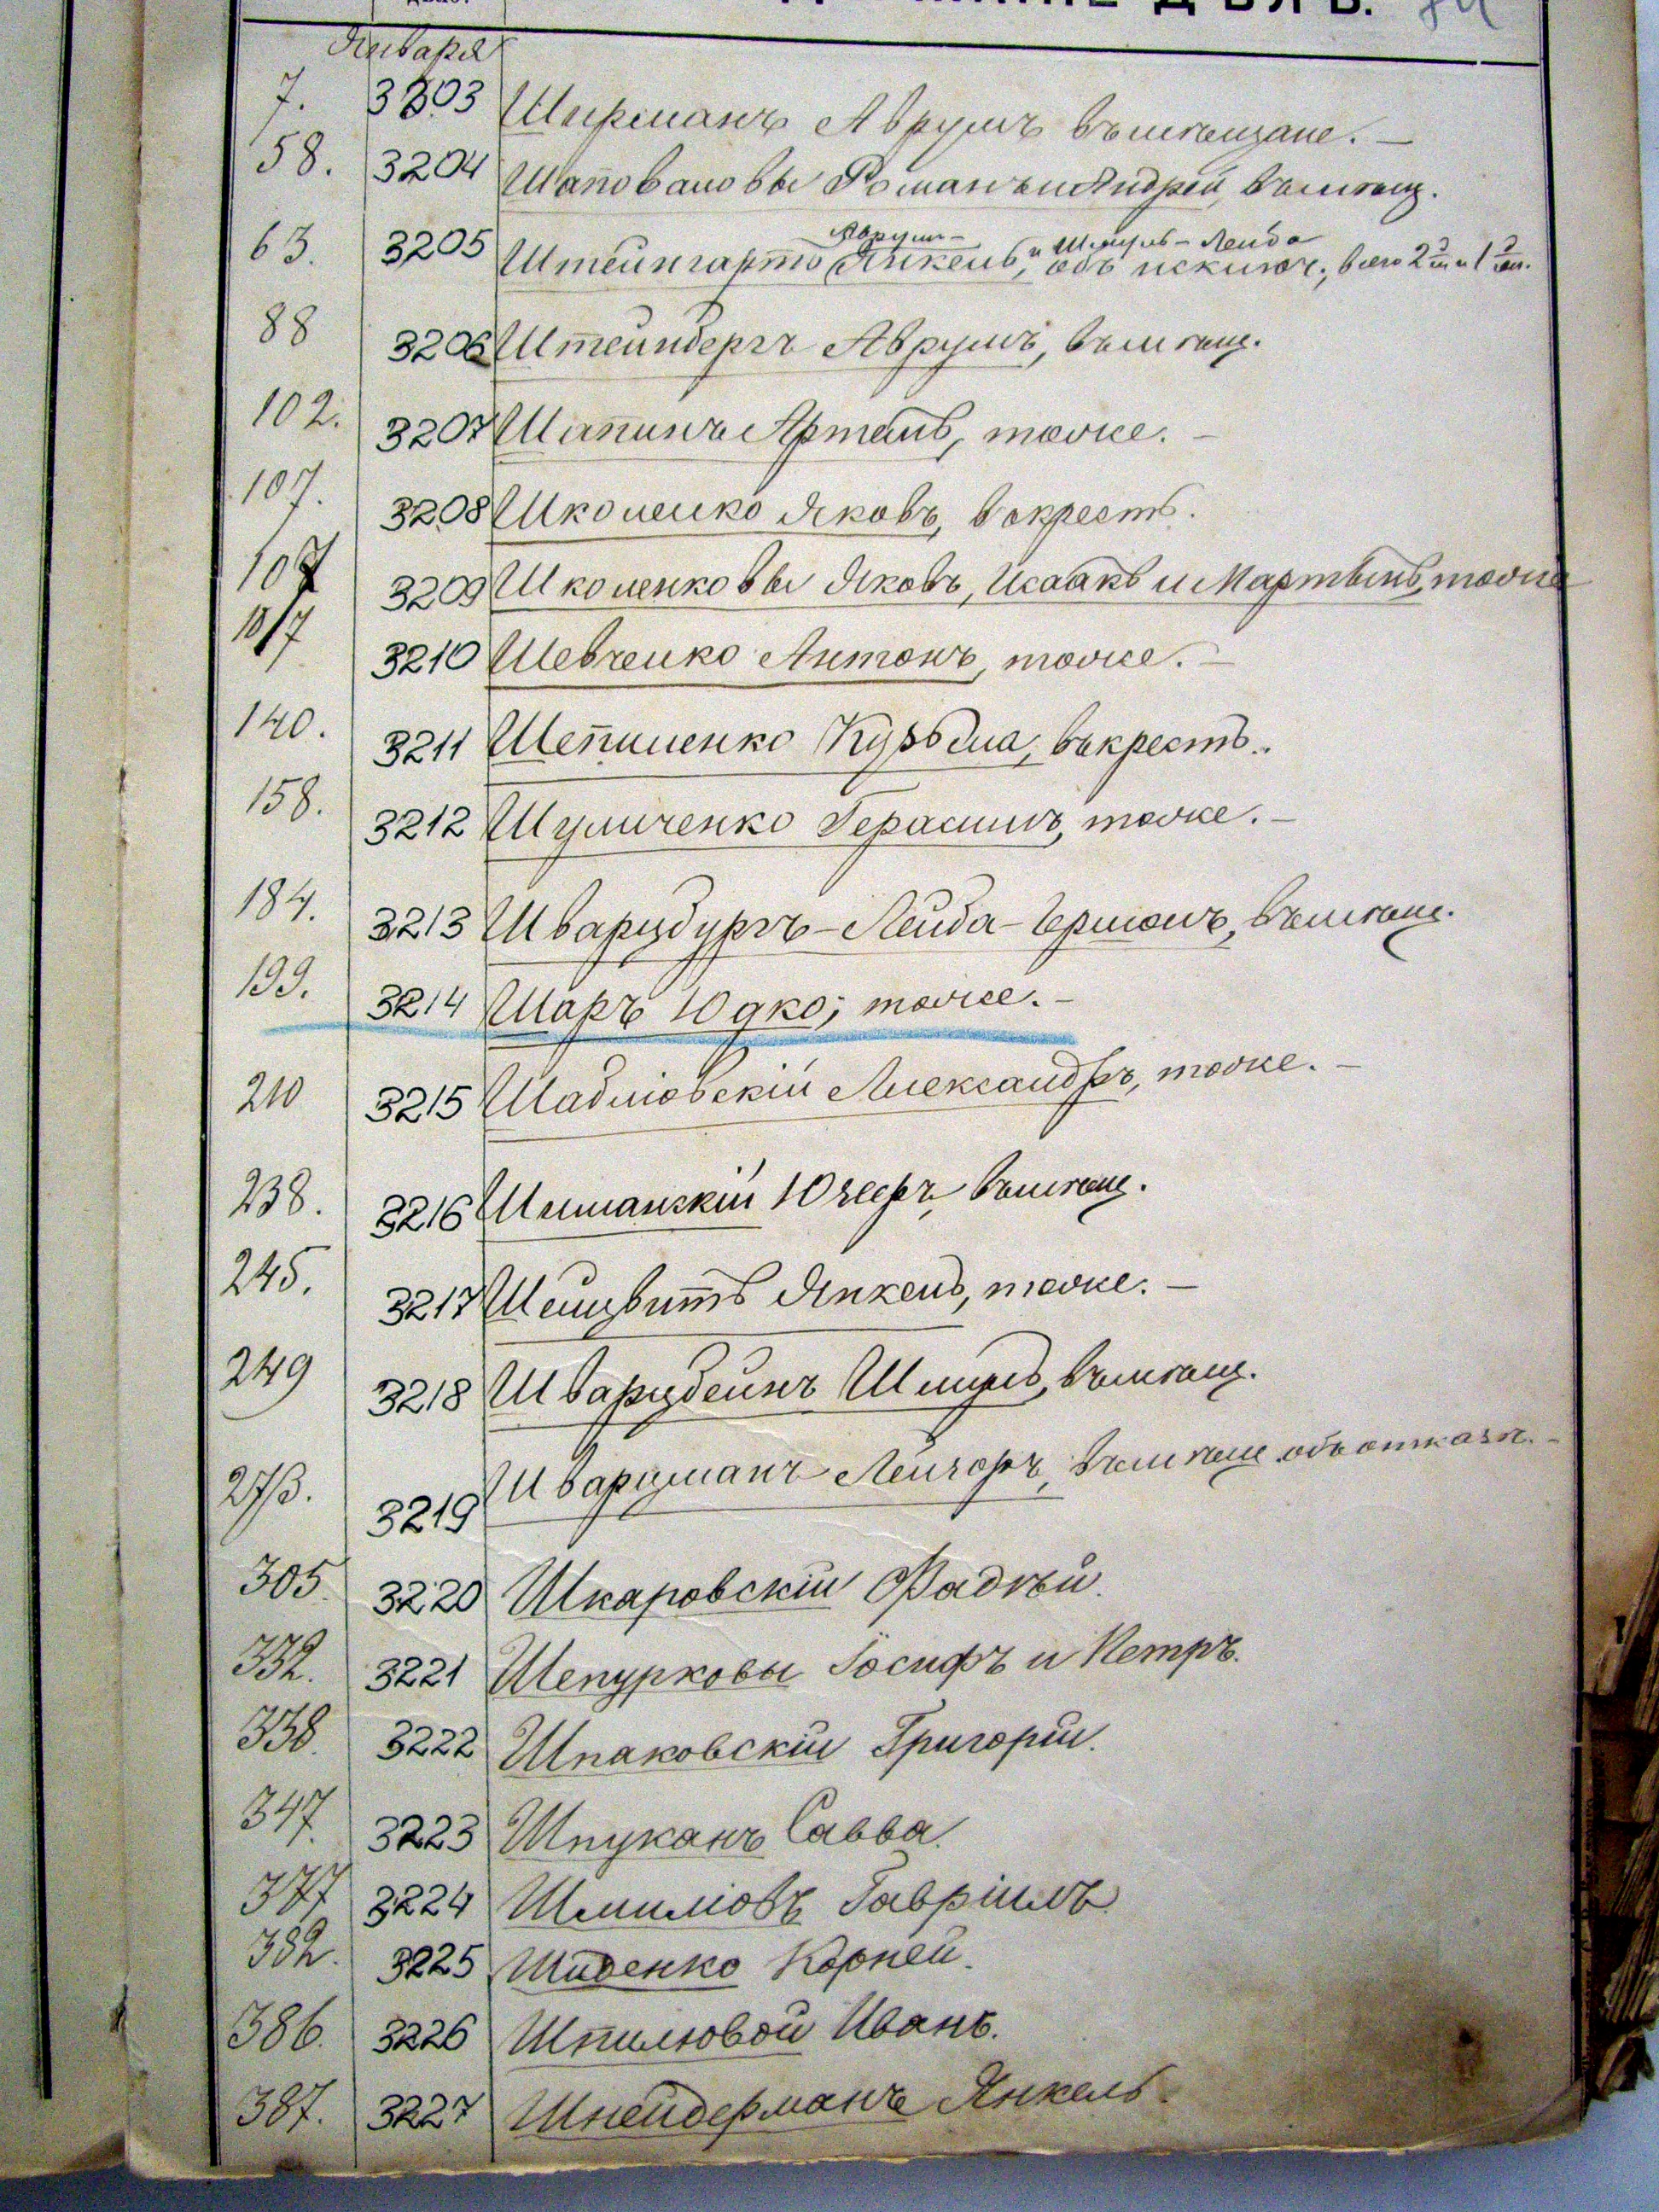 Января
7. 3203 Ширманъ Аврумъ въ мѣщане. —
58. 3204 Шаповаловы Романъ и Андрей, въ мѣщ.
Аврумъ- и Шмуль-Лейба
63. 3205 Штейнгартъ Янкель, объ исключ.; всего 2 и 1
88 3206 Штейнбергъ Аврумъ, въ мѣщ.
102. 3207 Шапинъ Артемъ, тоже. —
107. 3208 Школенко Яковъ, въ крест.
107 3209 Школенковы Яковъ, Исаакъ и Мартынъ, тоже
107 3210 Шевченко Антонъ, тоже. —
140. 3211 Шепиленко Кузьма, въ крест.
158. 3212 Шуличенко Герасимъ, тоже. —
184. 3213 Шварцбургъ-Лейба-Ершонъ, въ мѣщ.
199. 3214 Шаръ Юдко; тоже. —
210 3215 Шабліовскій Александръ, тоже. —
238. 3216 Шиманскій Юзефъ, въ мѣщ.
245. 3217 Янкель, тоже. —
249 3218 Шварцбейнъ Шмуль, въ мѣщ.
273. 3219 Шварцманъ Лейзоръ, въ мѣще. объ отказѣ. —
305. 3220 Шкаровскій Фадѣй.
332. 3221 Шепурковы Іосифъ и Петръ.
338. 3222 Шпаковскій Григорій.
347. 3223 Шпуканъ Савва.
377 3224 Шмиліовъ Гавріилъ
382. 3225 Шиденко Корней.
386. 3226 Шпилювой Иванъ.
387. 3227 Шнейдерманъ Янкель.